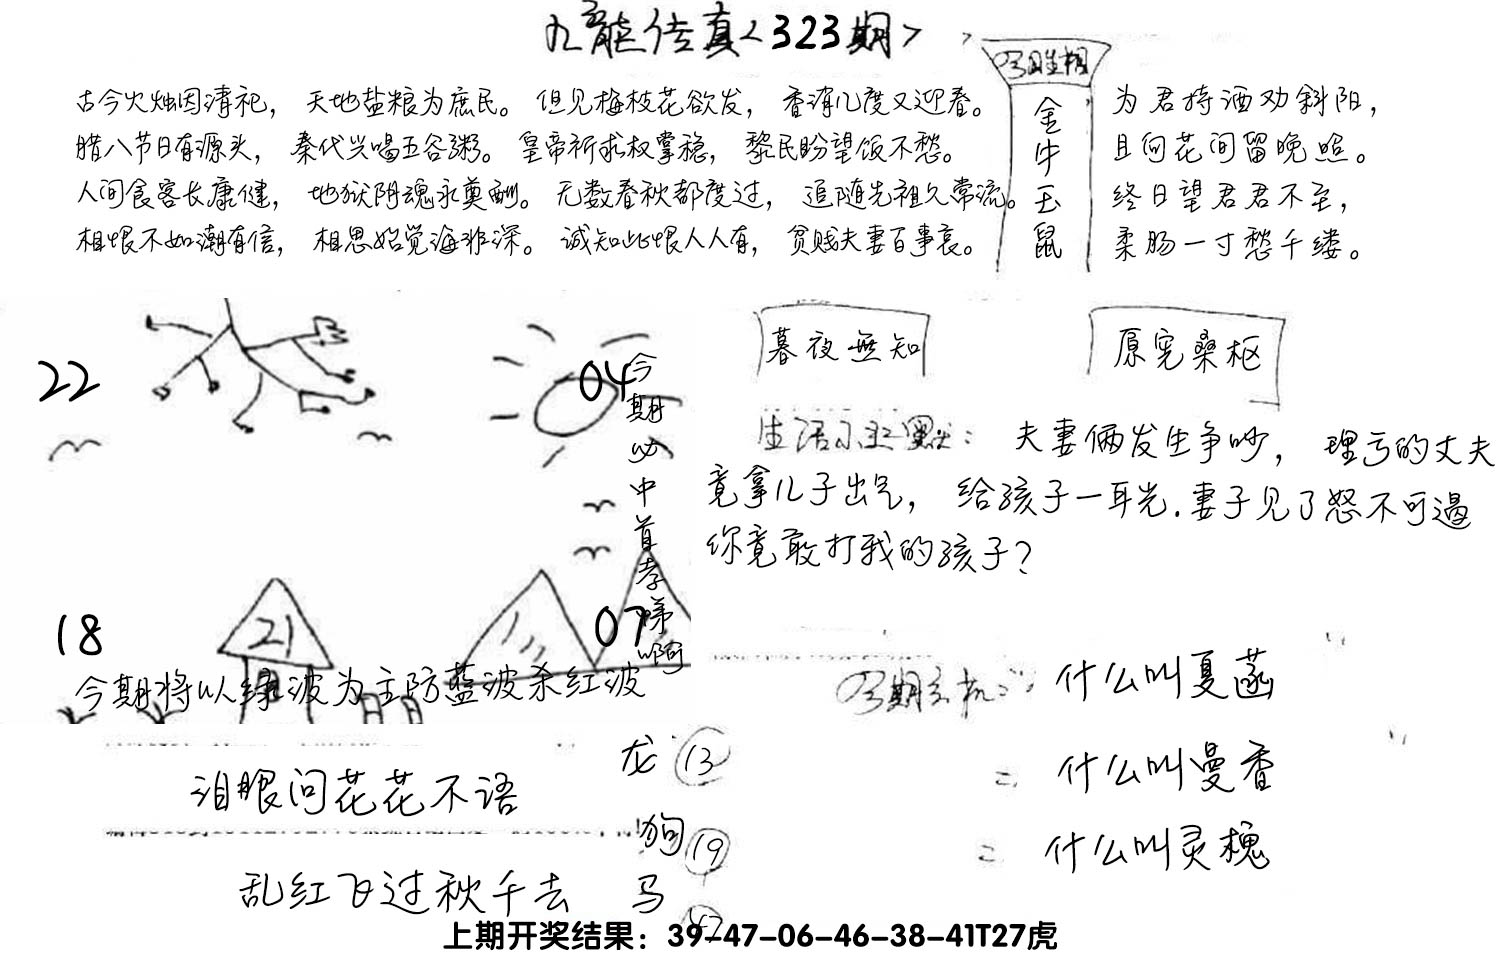 九龙传真<323期>
古今火烛因清祀，天地盐粮为庶民。但见梅枝花欲发，香消几度又迎春。
腊八节日有源头，秦代兴喝五谷粥。皇帝祈求权掌稳，黎民盼望饭不愁。
人间食客长康健，地狱阴魂永奠酬。无数春秋都度过，追随先祖久常流。
相恨不如潮有信，相思始觉海非深。诚知此恨人人有，贫贱夫妻百事哀。
今期生相
金牛玉鼠
为君持酒劝斜阳，
且向花间留晚照。
终日望君君不至，
柔肠一寸愁千缕。
22
04
18
21
07
今期必中首孝悌啊
今期将以绿波为主防蓝波杀红波
暮夜無知
原宪桑枢
生活小幽默：夫妻俩发生争吵，理亏的丈夫
竟拿儿子出气，给孩子一耳光.妻子见了怒不可遏
你竟敢打我的孩子？
今期玄机：什么叫夏菡
二 什么叫曼香
二 什么叫灵槐
泪眼问花花不语
乱红飞过秋千去
龙 13
狗 19
马
上期开奖结果：39-47-06-46-38-41T27虎